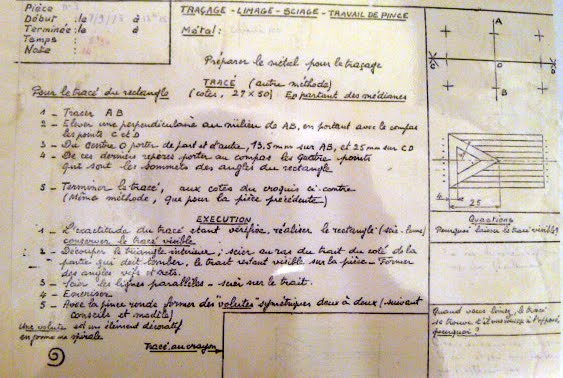 Pièce n°
Début : le 7/9/73 à
Terminée : le à
Temps :
Note :
TRAÇAGE - LIMAGE - SCIAGE - TRAVAIL DE PINCE
Métal :
Préparer le métal pour le traçage
TRACÉ (autre méthode)
Pour le tracé du rectangle (cotes, 27 x 50) En partant des médianes
1 - Tracer AB
2 - Elever une perpendiculaire au milieu de AB, en portant avec le compas
les points C et D
3 - Du Centre O porter de part et d'autre, 13,5mm sur AB, et 25mm sur CD
4 - De ces derniers repères porter au compas les quatre points
qui sont les sommets des angles du rectangle
5 - Terminer le tracé, aux cotes du croquis ci-contre
(Même méthode, que pour la pièce précédente)
EXECUTION
1 - L'exactitude du tracé étant vérifiée, réaliser le rectangle (scie-lime)
conserver le tracé visible
2 - Découper le triangle intérieur ; scier au ras du trait du coté de la
partie qui doit tomber, le trait restant visible sur la pièce - Former
des angles vifs et nets.
3 - Scier les lignes parallèles - suivi sur le trait.
4 - Emeriser
5 - Avec la pince ronde former des "volutes" symétriques deux à deux (suivant
conseils et modèle)
Une volute est un élément décoratif
en forme de spirale
Tracé au crayon
A
B
O
4
25
Questions
Pourquoi laisser le tracé visible ?
Quand vous limez, le tracé
se trouve t'il vis à l'opposé
pourquoi ?